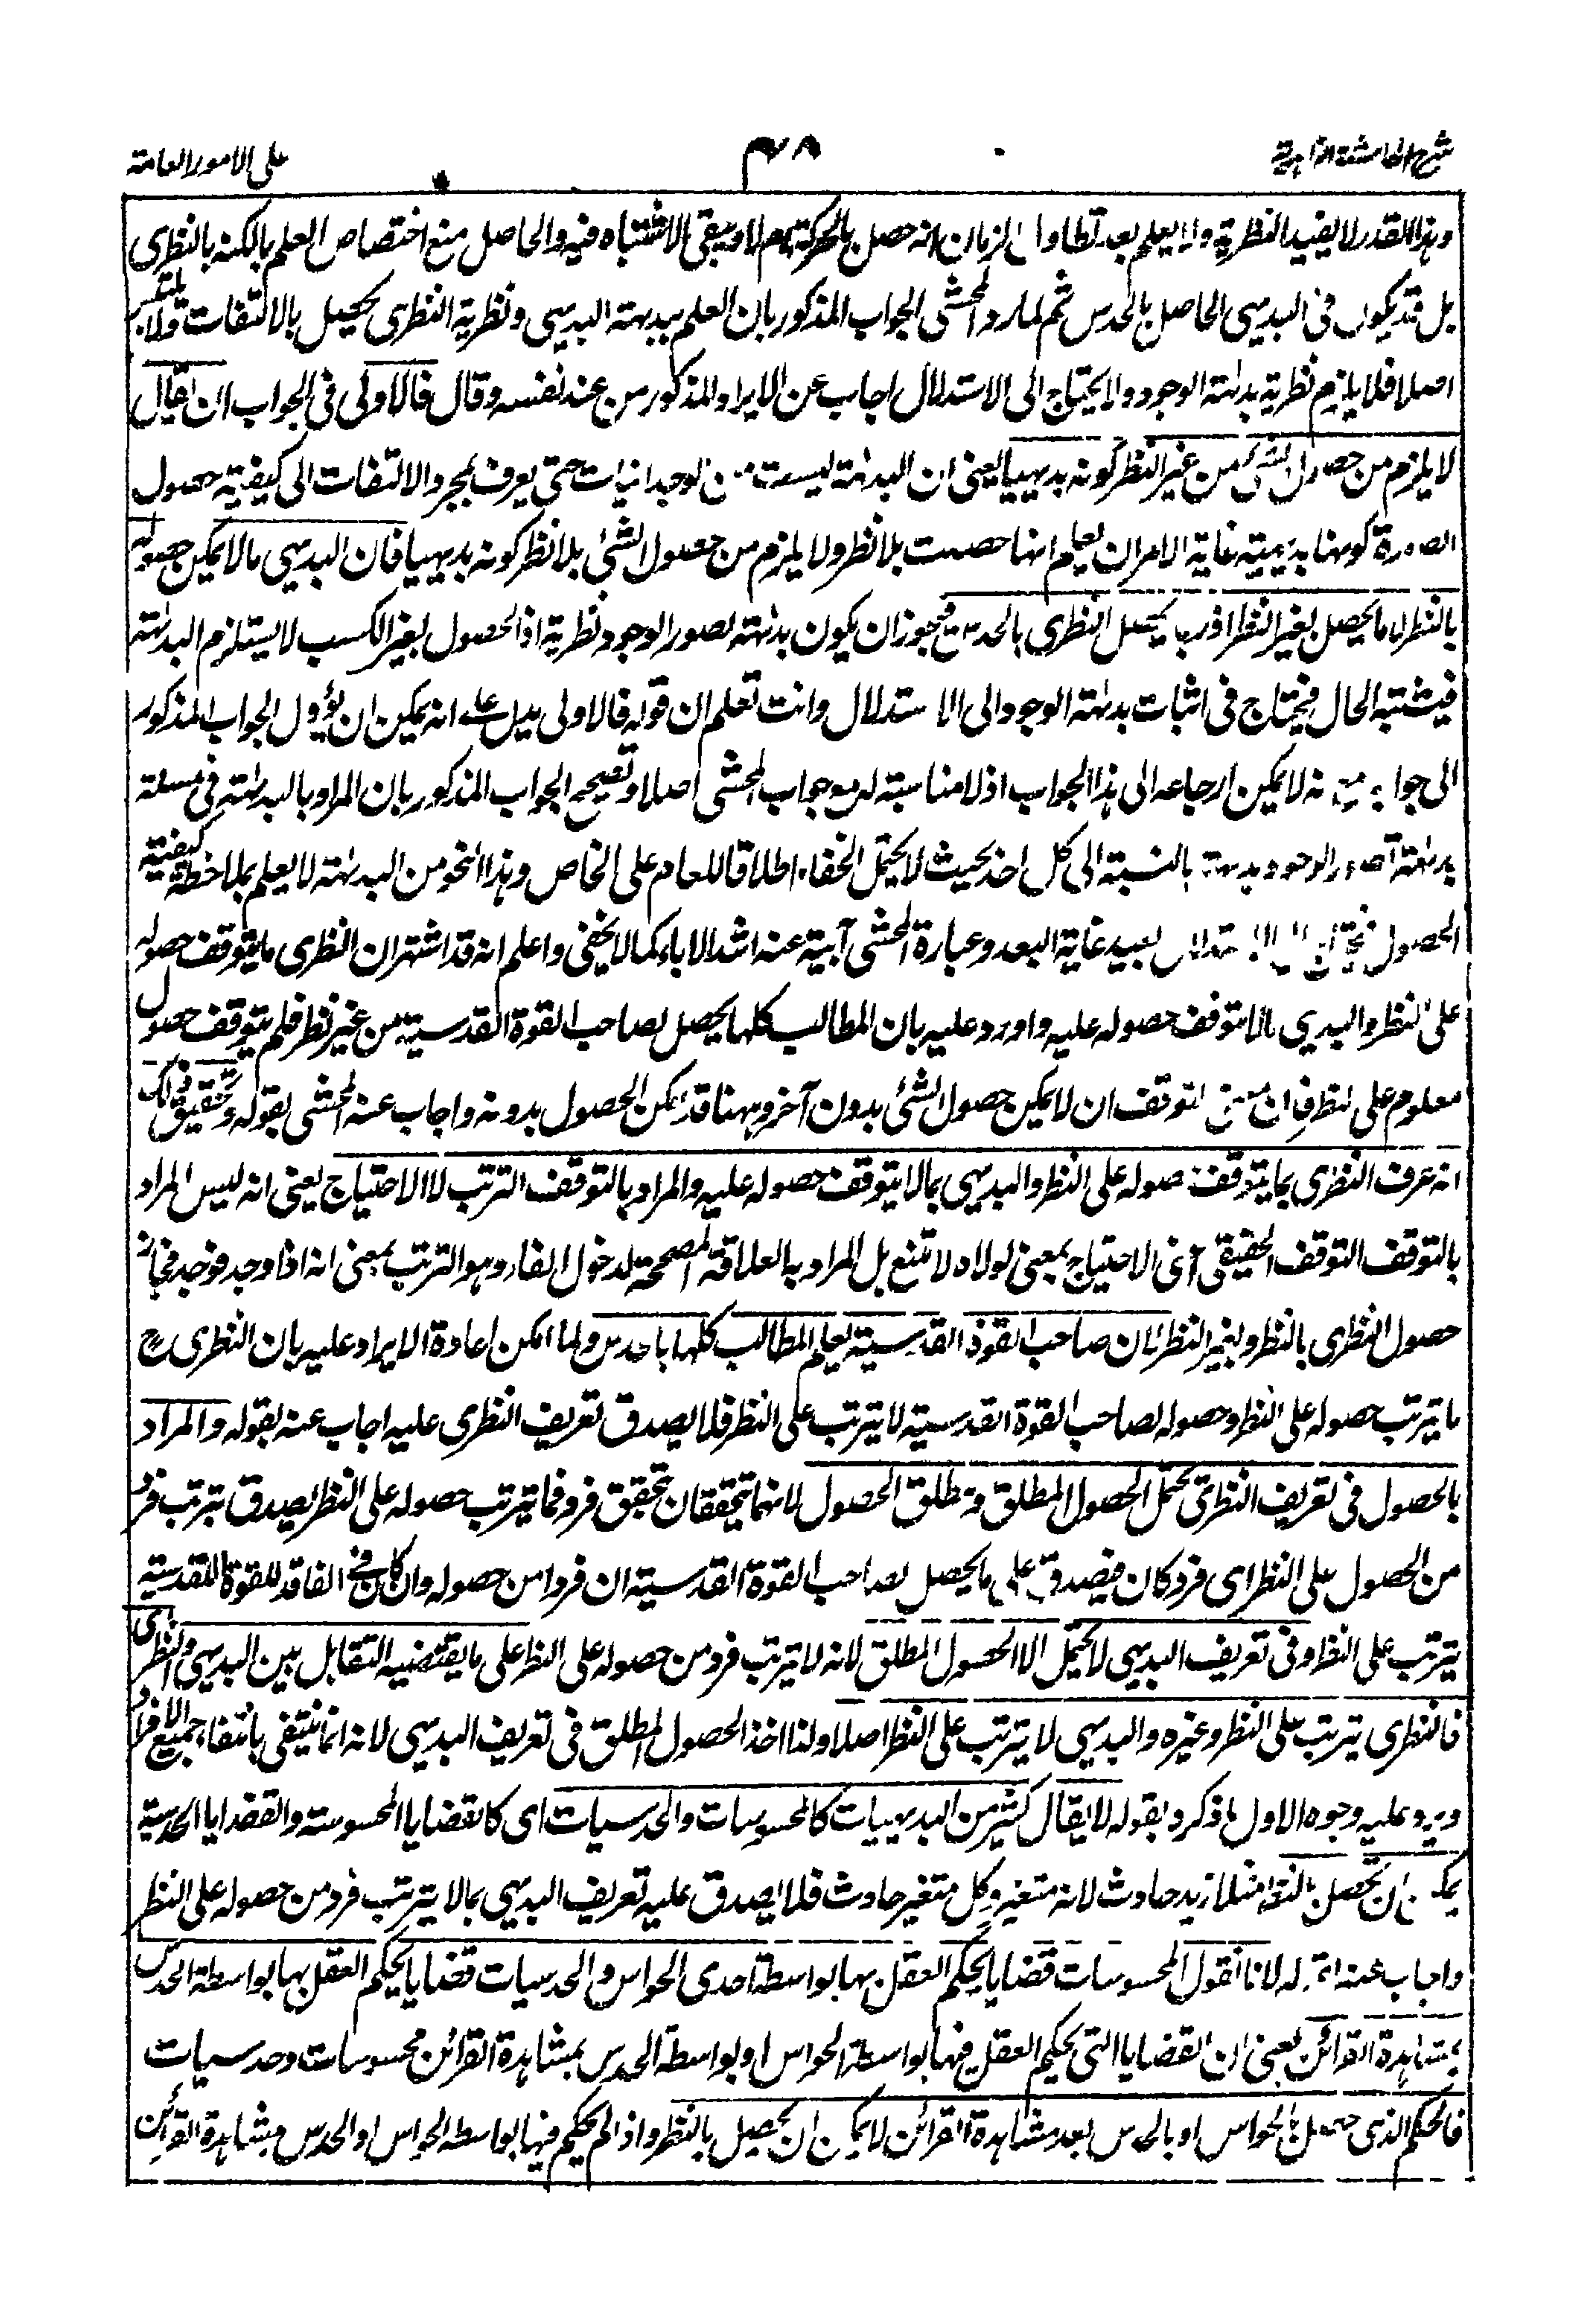 على الامور العامة
٤٨
شرح الحاشية الزاهدية
وهذا القدر لا يفيد النظرية ولا يعلم بعد تطاول الزمان انه حصل بالحركة ام لا ويبقى الاشتباه فيه والحاصل منع اختصاص العلم بالكنه بالنظرى
بل قد يكون فى البديهى الحاصل بالحدس ثم لما رد المحشى الجواب المذكور بان العلم ببداهته البديهى ونظرية النظرى يحصل بالالتفات فلا يلتبس
اصلا فلا يلزم نظرية بداهة الوجود ولا يحتاج الى الاستدلال اجاب عن الايراد المذكور من عند نفسه وقال فالاولى فى الجواب ان يقال
لا يلزم من حصول الشئ من غير النظر كونه بديهيا يعنى ان البداهة ليست من الوجدانيات حتى يعرف بمجرد الالتفات الى كيفية حصول
الصورة كونها بديهية غاية الامر ان يعلم انها حصلت بلا نظر ولا يلزم من حصول الشئ بلا نظر كونه بديهيا فان البديهى ما لا يمكن حصوله
بالنظر لا ما يحصل بغير النظر اذ ربما يحصل النظرى بالحدس فيجوز ان يكون بداهة تصور الوجود نظرية اذ الحصول بغير الكسب لا يستلزم البداهة
فيشتبه الحال فيحتاج فى اثبات بداهة الوجود الى الاستدلال وانت تعلم ان قوله فالاولى يدل على انه يمكن ان يؤول الجواب المذكور
الى جوابه مع انه لا يمكن ارجاعه الى هذا الجواب اذ لا مناسبة له مع جواب المحشى اصلا وتصحيح الجواب المذكور بان المراد بالبداهة فى مسئلة
بداهة تصور الوجود بداهته بالنسبة الى كل احد بحيث لا يحتمل الخفاء اطلاقا للعام على الخاص وهذا النحو من البداهة لا يعلم بملاحظة كيفية
الحصول فيحتاج الى الاستدلال بعيد غاية البعد وعبارة المحشى آبية عنه اشد الاباء كما لا يخفى واعلم انه قد اشتهر ان النظرى ما يتوقف حصوله
على النظر والبديهى ما لا يتوقف حصوله عليه واورد عليه بان المطالب كلها يحصل لصاحب القوة القدسية من غير نظر فلم يتوقف حصول
معلوم على نظر فان معنى التوقف ان لا يمكن حصول الشئ بدون آخر وههنا قد امكن الحصول بدونه واجاب عنه المحشى بقوله وتحقيق ذلك
انه عرف النظرى بما يتوقف حصوله على النظر والبديهى بما لا يتوقف حصوله عليه والمراد بالتوقف الترتب لا الاحتياج يعنى انه ليس المراد
بالتوقف التوقف الحقيقى اعنى الاحتياج بمعنى لولاه لامتنع بل المراد به العلاقة المصححة لدخول الفاء وهو الترتب بمعنى انه اذا وجد فوجد فجاز
حصول النظرى بالنظر وبغير النظر فان صاحب القوة القدسية يعلم المطالب كلها بالحدس ولما امكن اعادة الايراد عليه بان النظرى ح
ما يترتب حصوله على النظر وحصوله لصاحب القوة القدسية لا يترتب على النظر فلا يصدق تعريف النظرى عليه اجاب عنه بقوله والمراد
بالحصول فى تعريف النظرى يحتمل الحصول المطلق ومطلق الحصول لانهما يتحققان بتحقق فرد فما يترتب حصوله على النظر يصدق بترتب فرد
من الحصول على النظر اى فرد كان فيصدق على ما يحصل لصاحب القوة القدسية ان فردا من حصوله وان كان فى الفاقد للقوة القدسية
يترتب على النظر وفى تعريف البديهى لا يحتمل الا الحصول المطلق لانه لا يترتب فرد من حصوله على النظر على ما يقتضيه التقابل بين البديهى والنظرى
فالنظرى يترتب على النظر وغيره والبديهى لا يترتب على النظر اصلا ولذا اخذ الحصول المطلق فى تعريف البديهى لانه انما ينتفى بانتفاء جميع الافراد
ويرد عليه وجوه الاول ما ذكره بقوله لا يقال كثير من البديهيات كالمحسوسات والحدسيات اى كالقضايا المحسوسة والقضايا الحدسية
يمكن ان تحصل بالنظر مثلا زيد حادث لانه متغير وكل متغير حادث فلا يصدق عليه تعريف البديهى بما لا يترتب فرد من حصوله على النظر
واجاب عنه بقوله لانا نقول المحسوسات قضايا يحكم العقل بها بواسطة احدى الحواس والحدسيات قضايا يحكم العقل بها بواسطة الحدس
بمشاهدة القرائن يعنى ان القضايا التى يحكم العقل فيها بواسطة الحواس او بواسطة الحدس بمشاهدة القرائن محسوسات وحدسيات
فالحكم الذى حصل بالحواس او بالحدس بعد مشاهدة القرائن لا يمكن ان يحصل بالنظر واذا لم يحكم فيها بواسطة الحواس او الحدس بمشاهدة القرائن